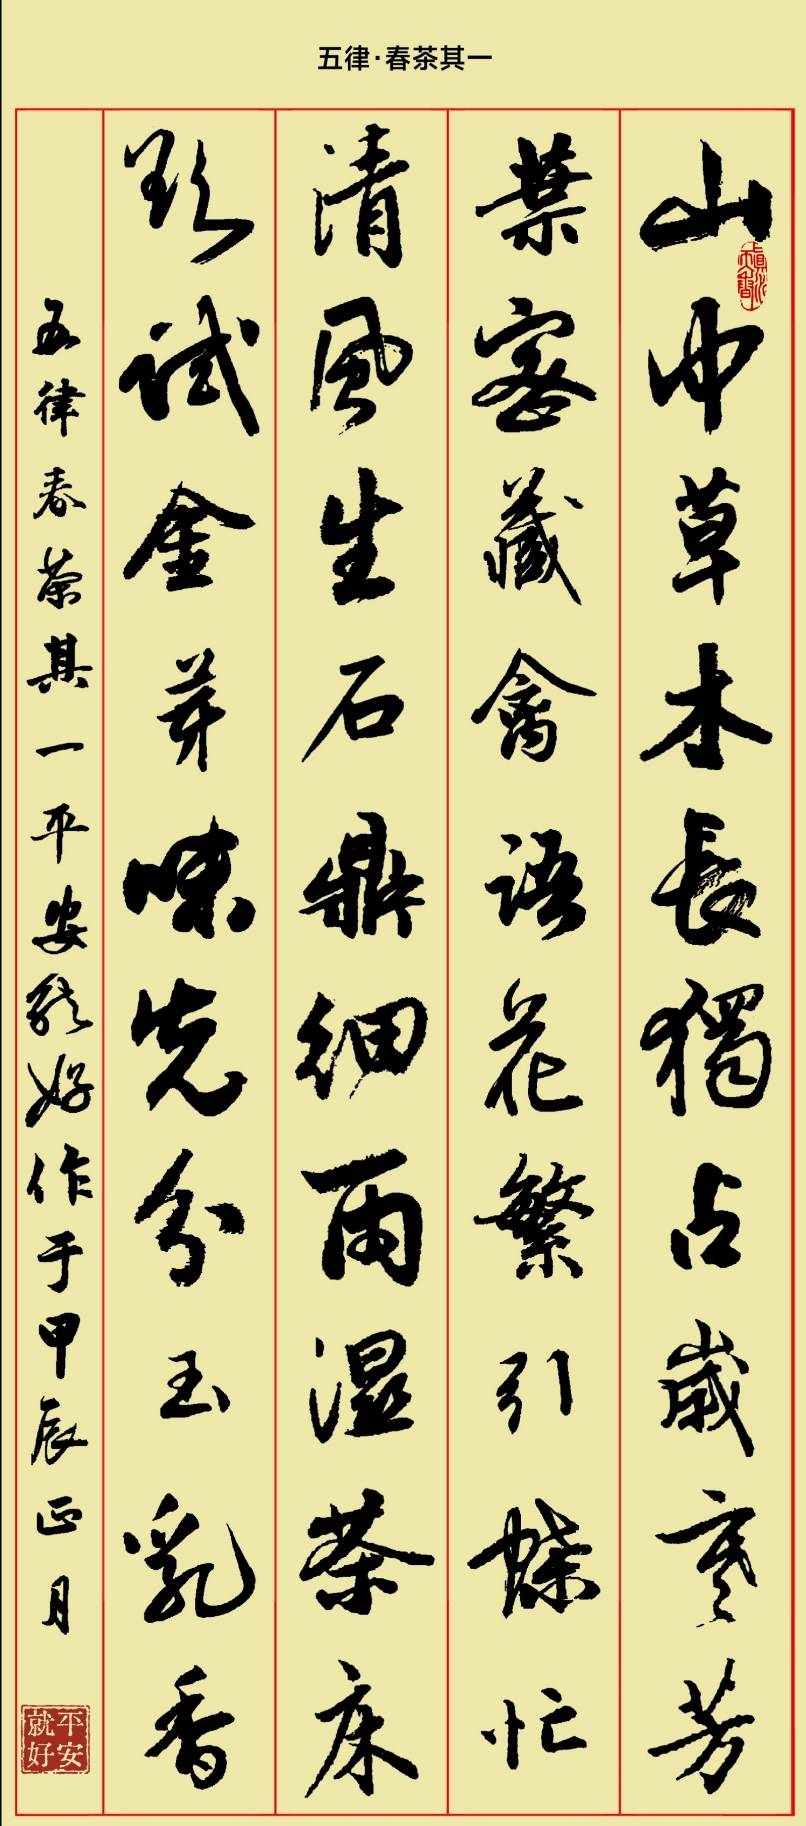 五律·春茶其一
山中草木長獨占歲寒芳
葉密藏禽語花繁引蝶忙
清風生石鼎細雨濕茶床
欣試金芽味先分玉乳香
五律春茶其一平安就好作于甲辰正月
平安就好